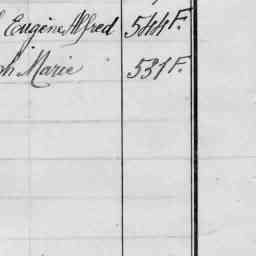 Eugène Alfred 544 F.
ph Marie 531 F.